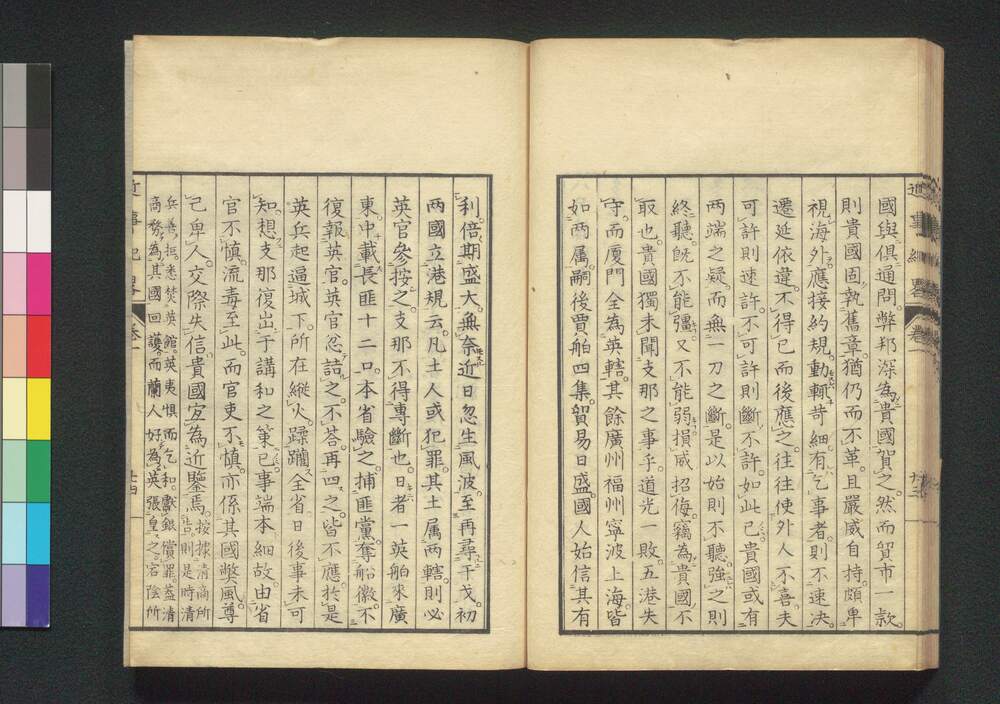 國與俱通問。弊邦深為貴國賀之。然而貿市一款。
則貴國固執舊章。猶仍而不革。且嚴威自持。頗卑
視海外。應接約規。動輒苛細。有乞事者。則不速决。
遷延依違。不得已而後應之。往往使外人不喜。夫
可許則速許。不可許則斷不許。如此已。貴國或有
兩端之疑。而無一刀之斷。是以始則不聽。強之則
終聽。既不能彊。又不能弱。損威招侮。竊為貴國不
取也。貴國獨未聞支那之事乎。道光一敗。五港失
守。而厦門全為英轄。其餘廣州福州寧波上海。皆
如兩属。嗣後賈舶四集。貿易日盛。國人始信其有
利。倍期盛大。無奈近日忽生風波。至再尋干戈。初
兩國立港規云。凡土人或犯罪。其土属兩轄。則必
英官參按之。支那不得專斷也。日者一英舶來廣
東。中載長匪十二口。本省驗之。捕匪黨。奪船徽。不
復報英官。英官忽詰之。不荅。再四之。皆不應。於是
英兵起逼城下。所在縱火。蹂躪全省。日後事未可
知。想支那復出于講和之策已。事端本細故。由省
官不慎。流毒至此。而官吏不慎。亦係其國弊風。尊
己卑人。交際失信。貴國宜為近鑒焉。按據清商所
告。則是時清
兵善拒。悉焚英館。英夷惧而乞和。獻銀償罪。蓋清
商務為其國回護。而蘭人好為英張皇之。宕陰所
近事紀畧 卷一 廿四